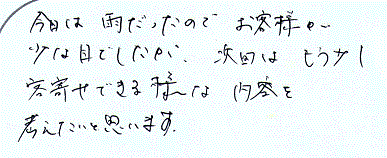 今日は雨だったのでお客様が
少な目でしたが、次回はもう少し
客寄せできる様な内容を
考えたいと思います。